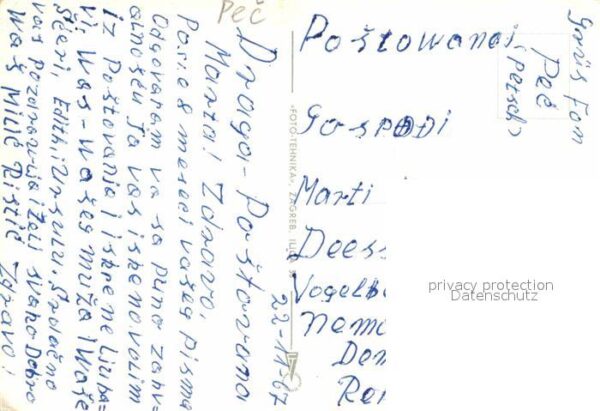 Peč
Draga - Poštovana
Marta! Zdravo,
Posle 8 meseci vašeg pisma
Odgovaram vam sa puno zahv=
alnošću Ja vas iskreno volim
iz Poštovanja i iskrene Ljuba=
vi, Was - Wašeg muža i Waše
Šćeri, Edith, i Ursulu. Srdačno
vas pozdravlja i želi svako Dobro
Waš Milić Ristić Zdravo!
22-11-67
»FOTO-TEHNIKA«, ZAGREB,
Poštowanoj
Gospođi
Marti
Deess
Vogelb
Nema
Den
Rer
Grüs Fon
Peč
(Petsch)
privacy protection
Datenschutz